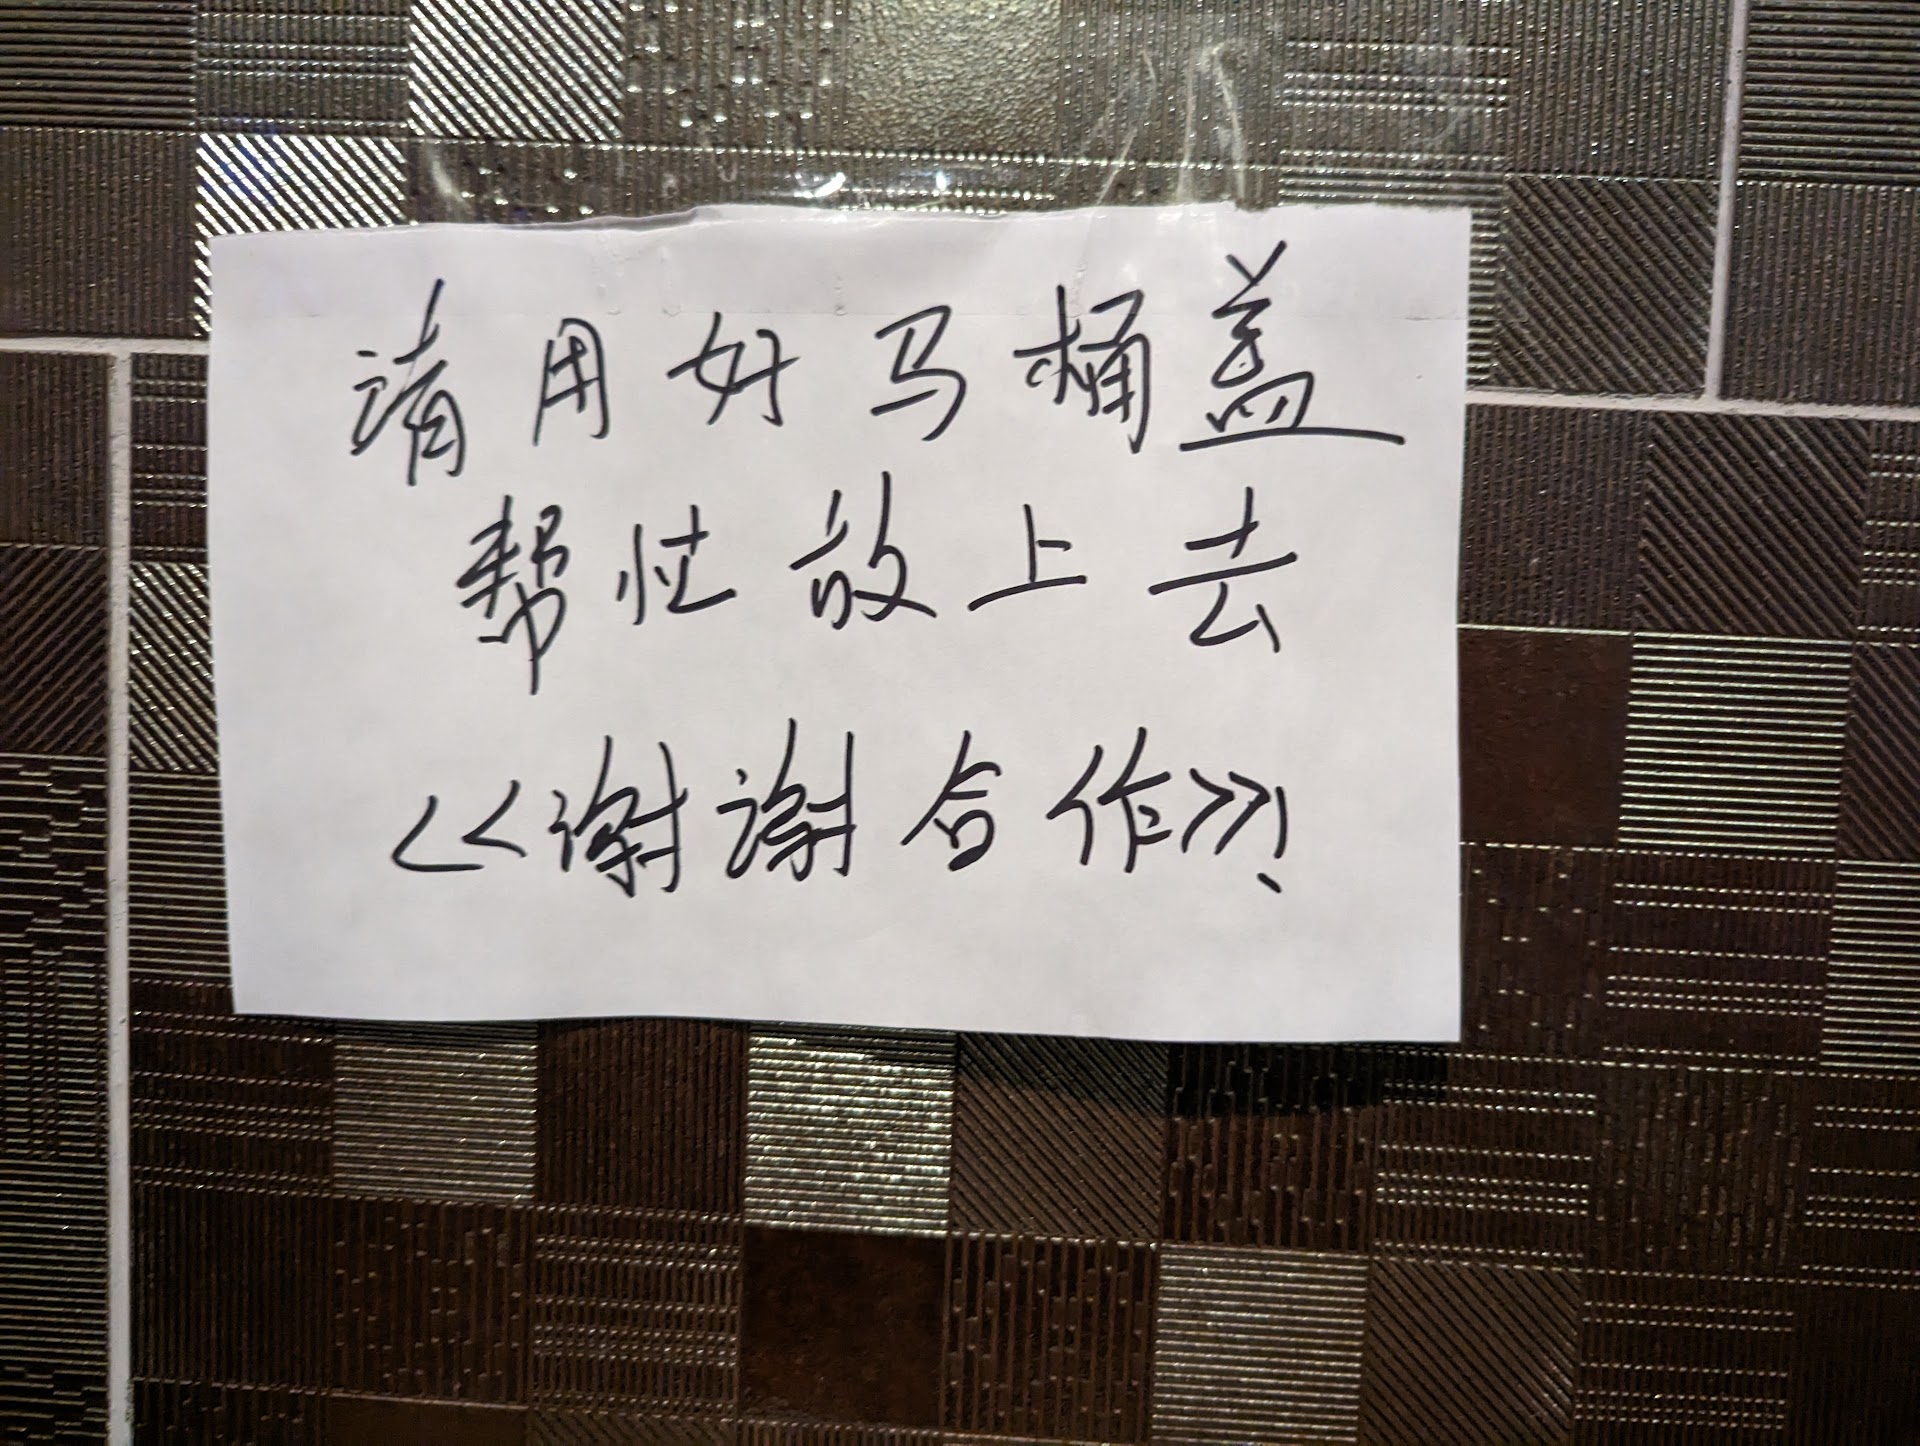 请用好马桶盖
帮忙放上去
<<谢谢合作>>!